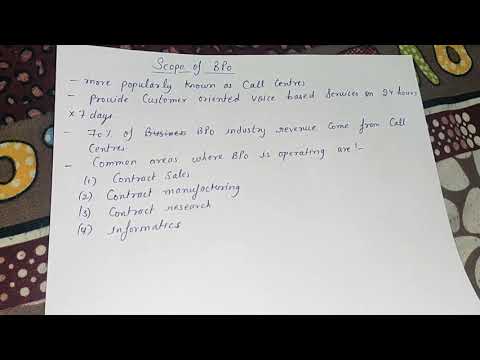 Scope of BPO
- more popularly known as Call Centres
- Provide Customer oriented voice based services on 24 hours
x 7 days
- 70% of Business BPO industry revenue come from Call
Centres.
- Common areas where BPO is operating are :-
(1) Contract Sales
(2) Contract manufacturing
(3) Contract research
(4) informatics